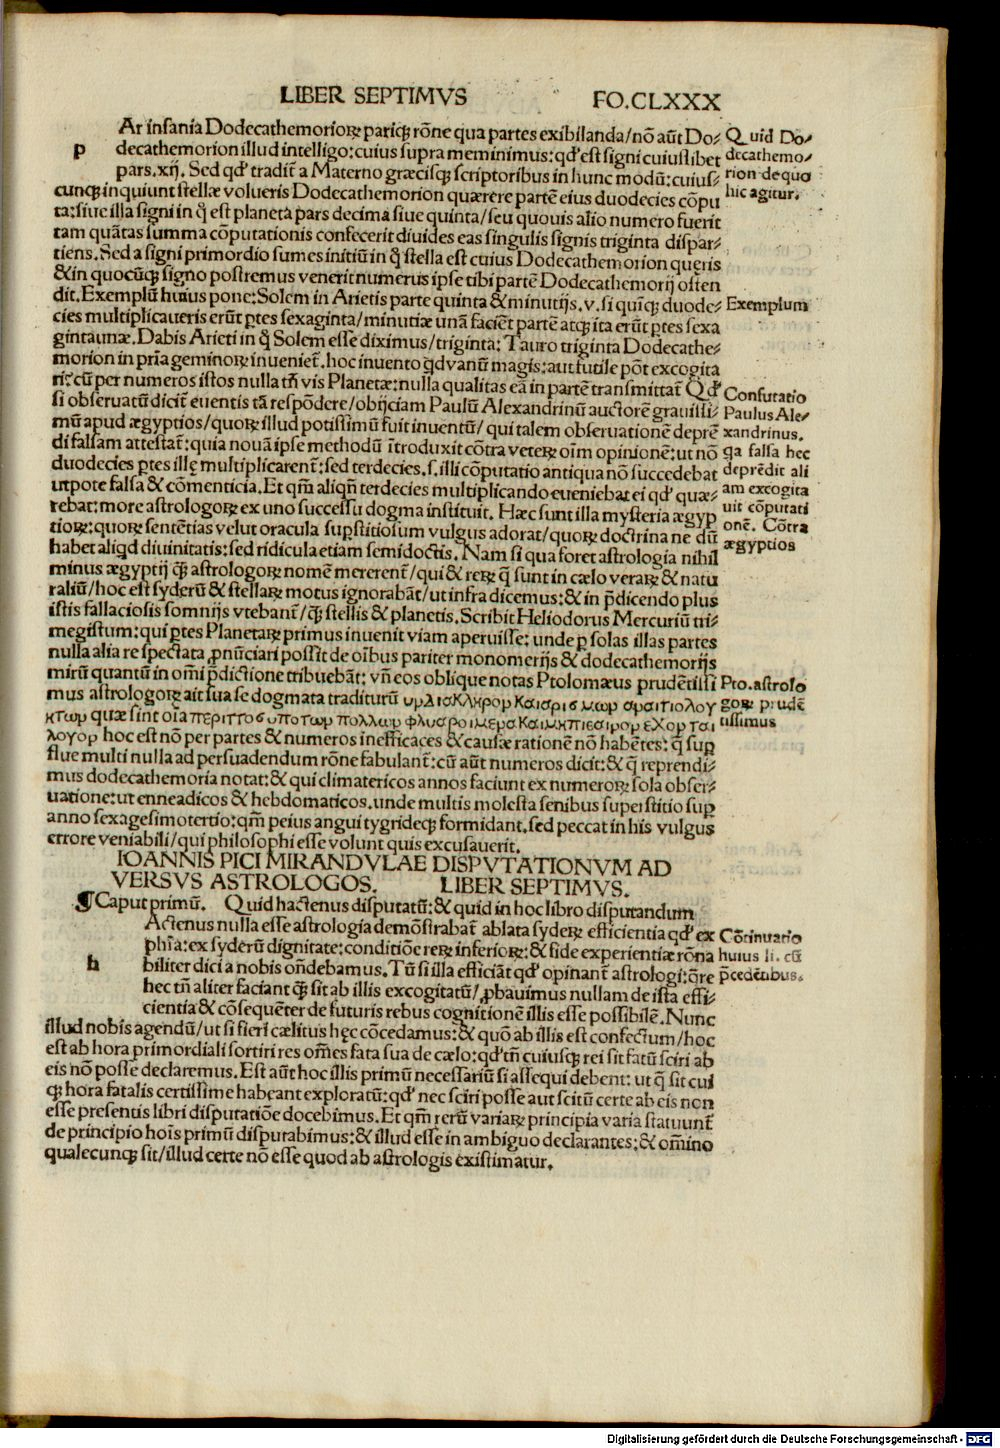 LIBER SEPTIMVS FO.CLXXX
Ar insania Dodecathemorioꝝ pariqꝫ rōne qua partes exibilanda/nō aūt Do⸗
p decathemorion illud intelligo:cuius supra meminimus:qď est signi cuiuslibet
pars.xij. Sed qď tradit̄ a Materno græcisqꝫ scriptoribus in hunc modū:cuius⸗
cunqꝫ inquiunt stellæ volueris Dodecathemorion quærere partē eius duodecies cōpu
ta:siue illa signi in q̄ est planeta pars decima siue quinta/seu quouis alio numero fuerit
tam quātas summa cōputationis confecerit diuides eas singulis signis triginta dispar⸗
tiens. Sed a signi primordio sumes initiū in q̄ stella est cuius Dodecathemorion queris
&in quocūqꝫ signo postremus venerit numerus ipse tibi partē Dodecathemorij osten
dit. Exemplū huius pone: Solem in Arietis parte quinta & minutijs.v.si quīqꝫ duode⸗
cies multiplicaueris erūt ꝑtes sexaginta/minutiæ unā faciēt partē atqꝫ ita erūt ꝑtes sexa
gintaunæ. Dabis Arieti in q̄ Solem esse diximus/triginta: Tauro triginta Dodecathe⸗
morion in pria geminoꝝ inueniet̄. hoc inuento qd vanū magis: aut futile pōt excogita
ri: cū per numeros istos nulla tñ vis Planetæ:nulla qualitas eā in partē transmittat̄ Qď
si obseruatū dicit̄ euentis tā respōdere/obijciam Paulū Alexandrinū auctorē grauissi⸗
mū apud ægyptios/quoꝝ illud potissimū fuit inuentū/qui talem obseruationē deprē
di falsam attestat̄: quia nouā ipse methodū ītroduxit cōtra veteꝝ oīm opinionē: ut nō
duodecies ꝑtes illę multiplicarent̄: sed terdecies.s.illi cōputatio antiqua nō succedebat
utpote falsa & cōmenticia. Et qm̄ aliqñ terdecies multiplicando eueniebat ei qď quæ⸗
rebat: more astrologoꝝ ex uno successu dogma instituit. Hæc sunt illa mysteria ægyp
tioꝝ: quoꝝ sentētias velut oracula supstitiosum vulgus adorat/quoꝝ doctrina ne dū
habet aliqd diuinitatis: sed ridicula etiam semidoctis. Nam si qua foret astrologia nihil
minus ægyptij qꝫ astrologoꝝ nomē mererent̄/qui & reꝝ q̄ sunt in cælo veraꝝ & natu
raliū/hoc est syderū & stellaꝝ motus ignorabāt/ut infra dicemus: & in p̄dicendo plus
istis fallaciosis somnijs vtebant̄/qꝫ stellis & planetis. Scribit Heliodorus Mercuriū tri⸗
megistum: qui ꝑtes Planetaꝝ primus inuenit viam aperuisse: unde ꝑ solas illas partes
nulla alia re spectata ꝓnūciari possit de oībus pariter monomerijs & dodecathemorijs
mirū quantū in omī p̄dictione tribuebāt: vñ eos oblique notas Ptolomæus prudētissi
mus astrologoꝝ ait sua se dogmata traditurū
quæ sint oīa
λογορ hoc est nō per partes & numeros inefficaces & causæ rationē nō habētes: q̄ sup
flue multi nulla ad persuadendum rōne fabulant̄: cū aūt numeros dicit: & q̄ reprendi⸗
mus dodecathemoria notat: & qui climatericos annos faciunt ex numeroꝝ sola obser⸗
uatione: ut enneadicos & hebdomaticos. unde multis molesta senibus superstitio sup
anno sexagesimotertio: qm̄ peius angui tygrideqꝫ formidant. sed peccat in his vulgus
errore veniabili/qui philosophi esse volunt quis excusauerit.
IOANNIS PICI MIRANDVLAE DISPVTATIONVM AD
VERSVS ASTROLOGOS. LIBER SEPTIMVS.
¶Caput primū. Quid hactenus disputatū: & quid in hoc libro disputandum
Actenus nulla esse astrologia demōstrabat̄ ablata sydeꝝ efficientia qď ex
phīa: ex syderū dignitate: conditiōe reꝝ inferioꝝ: & fide experientiæ rōna
h biliter dici a nobis oñdebamus. Tū si illa efficiāt qď opinant̄ astrologi: q̄re
hec tñ aliter faciant qꝫ sit ab illis excogitatū/ꝓbauimus nullam de ista effi⸗
cientia & cōsequēter de futuris rebus cognitionē illis esse possibilē. Nunc
illud nobis agendū/ut si fieri cælitus hęc cōcedamus: & quō ab illis est confectum/hoc
est ab hora primordiali sortiri res om̄es fata sua de cælo: qď tm̄ cuiusqꝫ rei sit fatū sciri ab
eis nō posse declaremus. Est aūt hoc illis primū necessariū si assequi debent: ut q̄ sit cui
qꝫ hora fatalis certissime habeant exploratū: qď nec sciri posse aut scitū certe ab eis non
esse presentis libri disputatiōe docebimus. Et qm̄ rerū variaꝝ principia varia statuunt̄
de principio hoīs primū disputabimus: & illud esse in ambiguo declarantes: & om̄ino
qualecunqꝫ sit/illud certe nō esse quod ab astrologis existimatur.
Quid Do⸗
decathemo⸗
rion de quo
hic agitur.
Exemplum
Confutatio
Paulus Ale⸗
xandrinus.
ga falsa hec
deprēdit ali
am excogita
uit cōputati
onē. Cōtra
ægyptios
Pto.astrolo
goꝝ prudē
tissimus
Cōtinuatio
huius li. cū
p̄cedētibus.
Digitalisierung gefördert durch die Deutsche Forschungsgemeinschaft - DFG